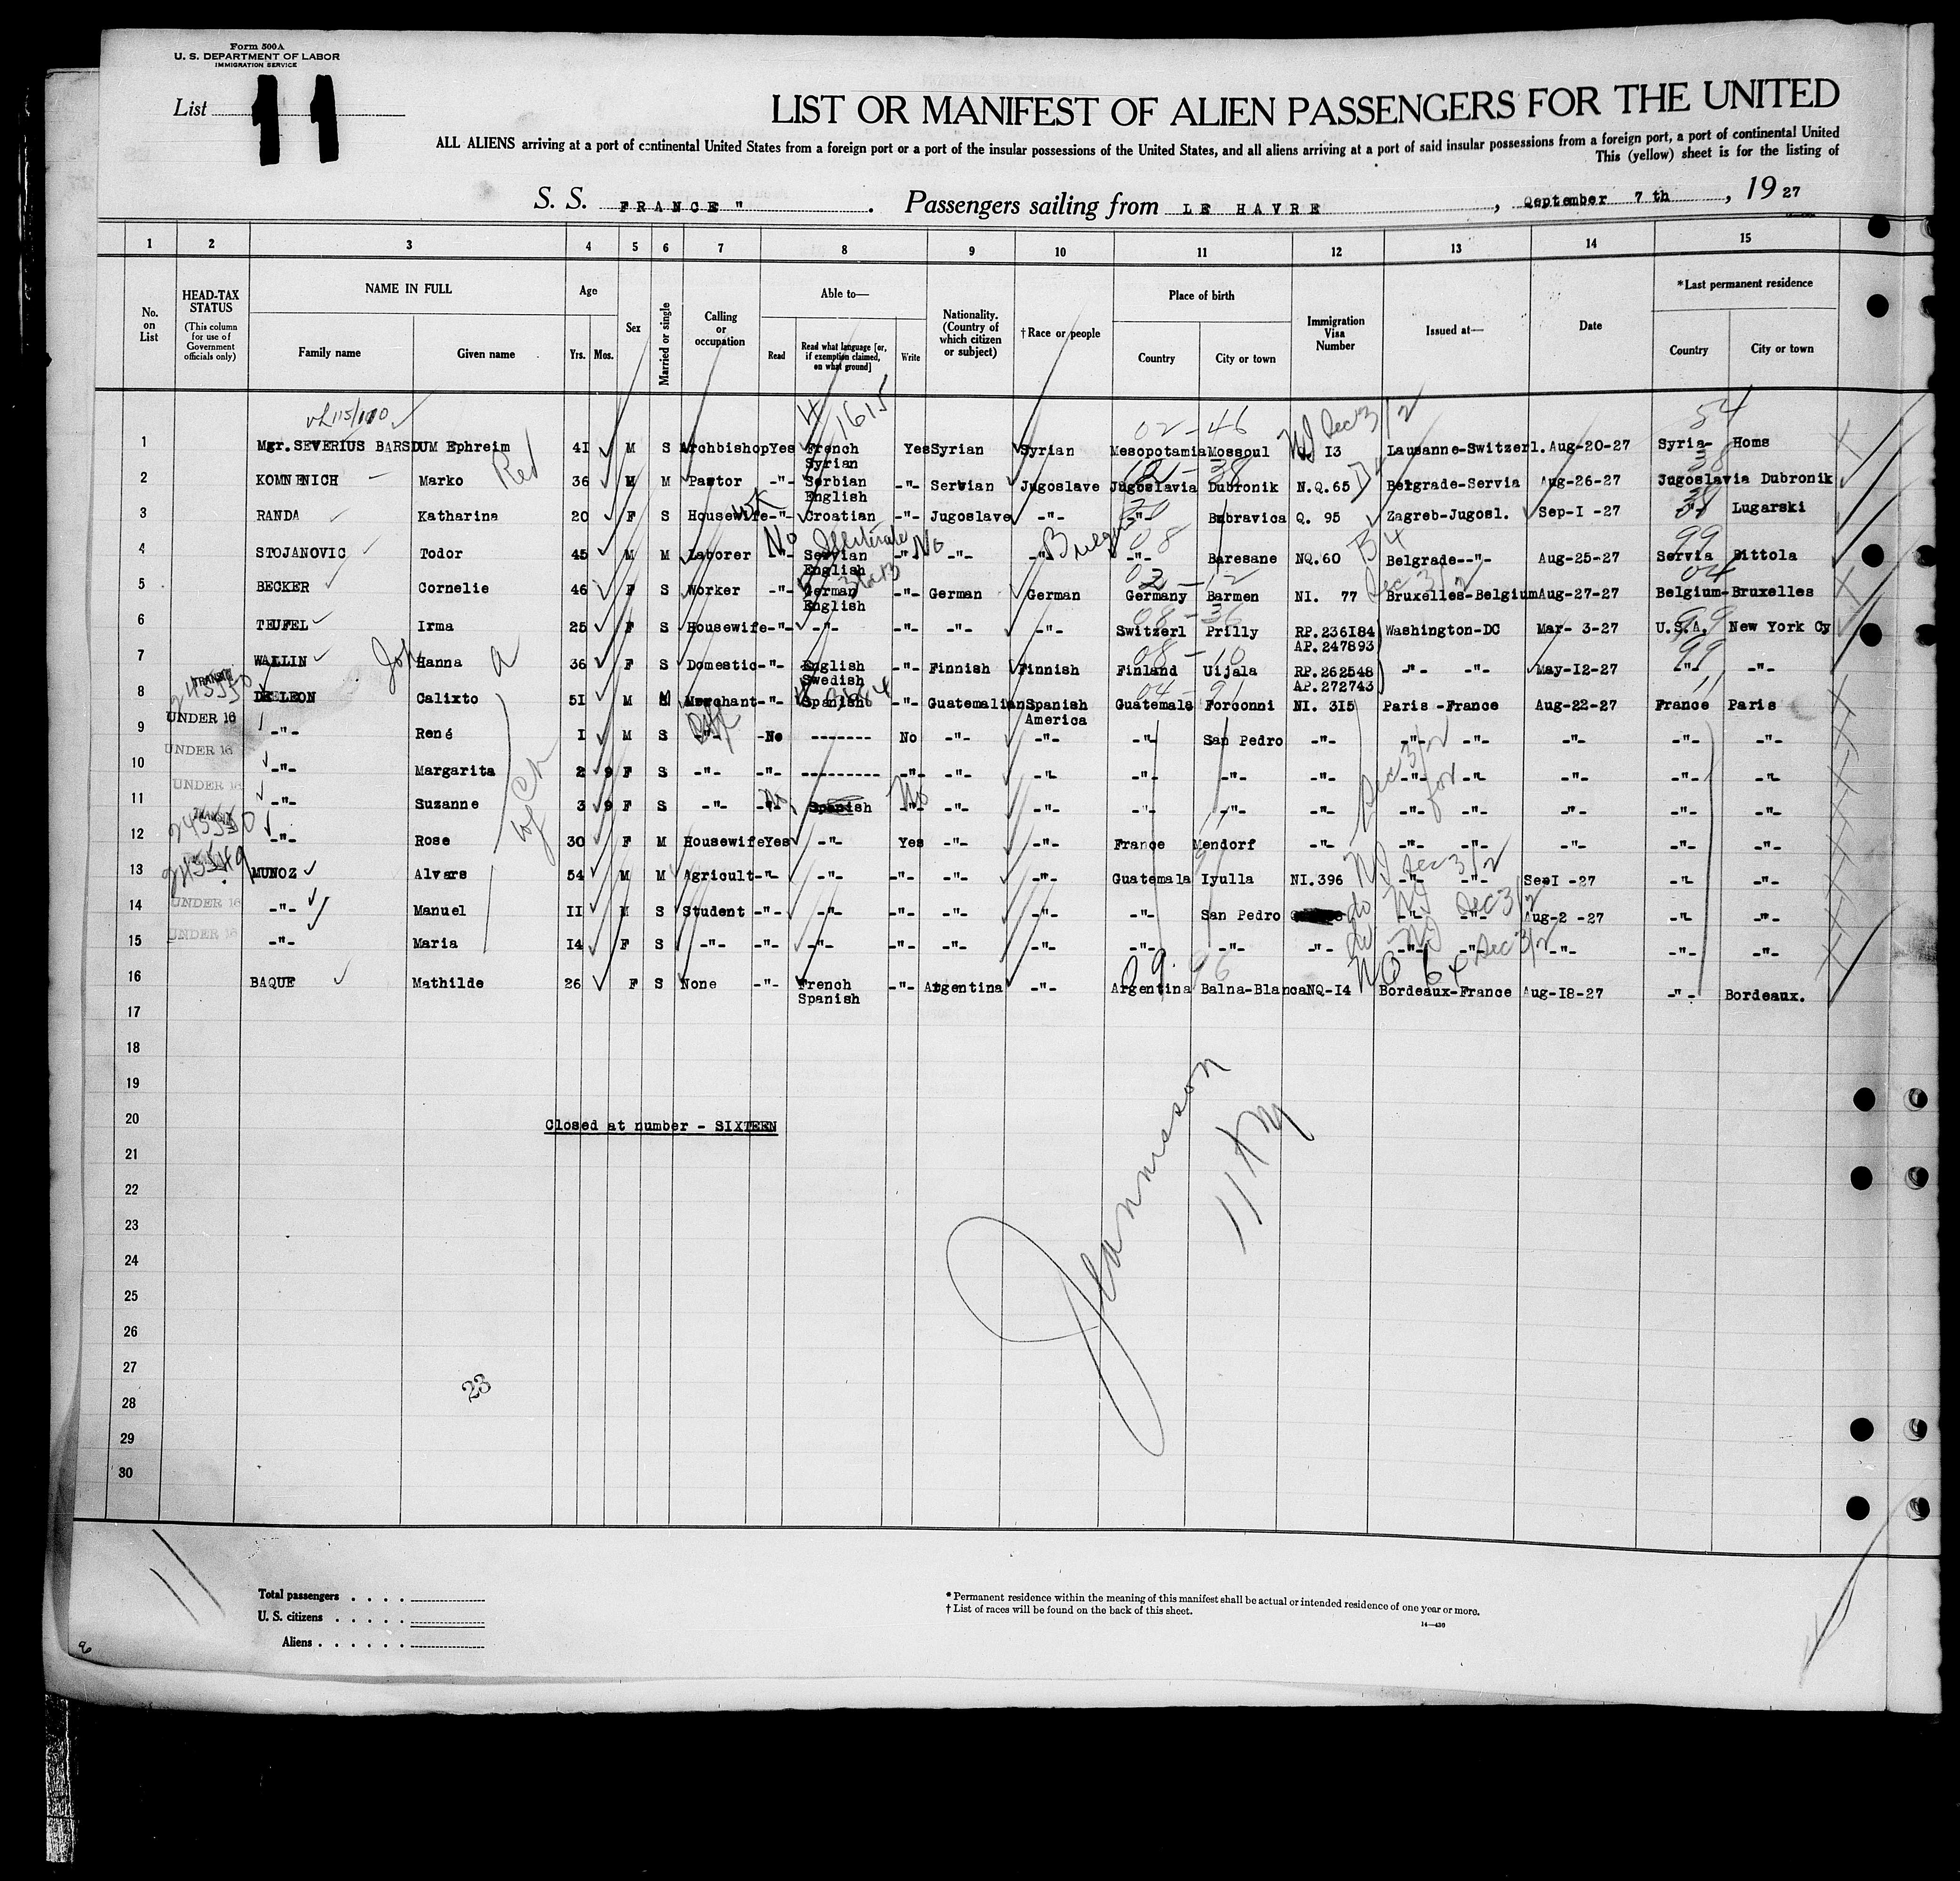 Form 500A
U. S. DEPARTMENT OF LABOR
IMMIGRATION SERVICE
List 11
LIST OR MANIFEST OF ALIEN PASSENGERS FOR THE UNITED
ALL ALIENS arriving at a port of continental United States from a foreign port or a port of the insular possessions of the United States, and all aliens arriving at a port of said insular possessions from a foreign port, a port of continental United
This (yellow) sheet is for the listing of
S. S. FRANCE " . Passengers sailing from LE HAVRE , Qeptember 7 th , 19 27
1 2 3 4 5 6 7 8 9 10 11 12 13 14 15
No. on List
HEAD-TAX STATUS (This column for use of Government officials only)
NAME IN FULL
Family name Given name
Age
Yrs. Mos.
Sex
Married or single
Calling or occupation
Able to—
Read
Read what language [or, if exemption claimed, on what ground]
Write
Nationality. (Country of which citizen or subject)
†Race or people
Place of birth
Country City or town
Immigration Visa Number
Issued at—
Date
*Last permanent residence
Country City or town
1615 02-46 Dec 3/2 54
1 Mgr. SEVERIUS BARSDUM Ephreim 41 M S Archbishop Yes French Yes Syrian Syrian Mesopotamia Mossoul I3 Lausanne-Switzerl. Aug-20-27 Syria- Homs
Syrian
2 KOMNENICH Marko 36 M M Pastor -"- Serbian -"- Servian Jugoslave Jugoslavia Dubronik N.Q.65 Belgrade-Servia Aug-26-27 Jugoslavia Dubronik
English
3 RANDA Katharina 20 F S Housewife -"- Croatian -"- Jugoslave -"- -"- Bubravica Q. 95 Zagreb-Jugosl. Sep-I -27 -"- Lugarski
No Illiterate No 08 99
4 STOJANOVIC Todor 45 M M Laborer -"- Servian -"- -"- -"- -"- Baresane NQ.60 Belgrade--"- Aug-25-27 Servia Bittola
English
5 BECKER Cornelie 46 F S Worker -"- German -"- German German Germany Barmen NI. 77 Bruxelles-Belgium Aug-27-27 Belgium-Bruxelles
English
6 TEUFEL Irma 25 F S Housewife -"- -"- -"- -"- -"- Switzerl Prilly RP.236I84 Washington-DC Mar- 3-27 U.S.A. New York Cy
AP.247893
7 WALLIN Hanna 36 F S Domestic -"- English -"- Finnish Finnish Finland Uijala RP.262548 -"- -"- May-I2-27 -"- -"-
Swedish AP.272743
8 DE LEON Calixto 5I M M Merchant -"- Spanish -"- Guatemalian Spanish Guatemala Forconni NI. 3I5 Paris -France Aug-22-27 France Paris
America
UNDER 16
9 -"- René I M S -"- -No ------- No -"- -"- -"- San Pedro -"- -"- -"- -"- -"- -"-
UNDER 16
10 -"- Margarita 2 9 F S -"- -"- --------- -"- -"- -"- -"- -"- -"- -"- -"- -"- -"- -"-
UNDER 16
11 -"- Suzanne 3 9 F S -"- -"- Spanish No -"- -"- -"- -"- -"- -"- -"- -"- -"- -"-
12 -"- Rose 30 F M Housewife Yes -"- Yes -"- -"- France Mendorf -"- -"- -"- -"- -"- -"-
13 MUNOZ Alvars 54 M M Agricult -"- -"- -"- -"- -"- Guatemala Iyulla NI.396 -"- -"- SepI -27 -"- -"-
UNDER 16
14 -"- Manuel II M S Student -"- -"- -"- -"- -"- -"- San Pedro -"- -"- Aug-2 -27 -"- -"-
UNDER 16
15 -"- Maria I4 F S -"- -"- -"- -"- -"- -"- -"- -"- -"- -"- -"- -"- -"- -"-
16 BAQUE Mathilde 26 F S None -"- French -"- Argentina -"- Argentina Balna-Blanca NQ-I4 Bordeaux-France Aug-I8-27 -"- Bordeaux.
Spanish
17
18
19
20
Closed at number - SIXTEEN
21
22
23
24
25
26
27
28
29
30
Jeannesson
23
11
Total passengers . . . .
U. S. citizens . . . . .
Aliens . . . . . .
* Permanent residence within the meaning of this manifest shall be actual or intended residence of one year or more.
† List of races will be found on the back of this sheet.
14—430